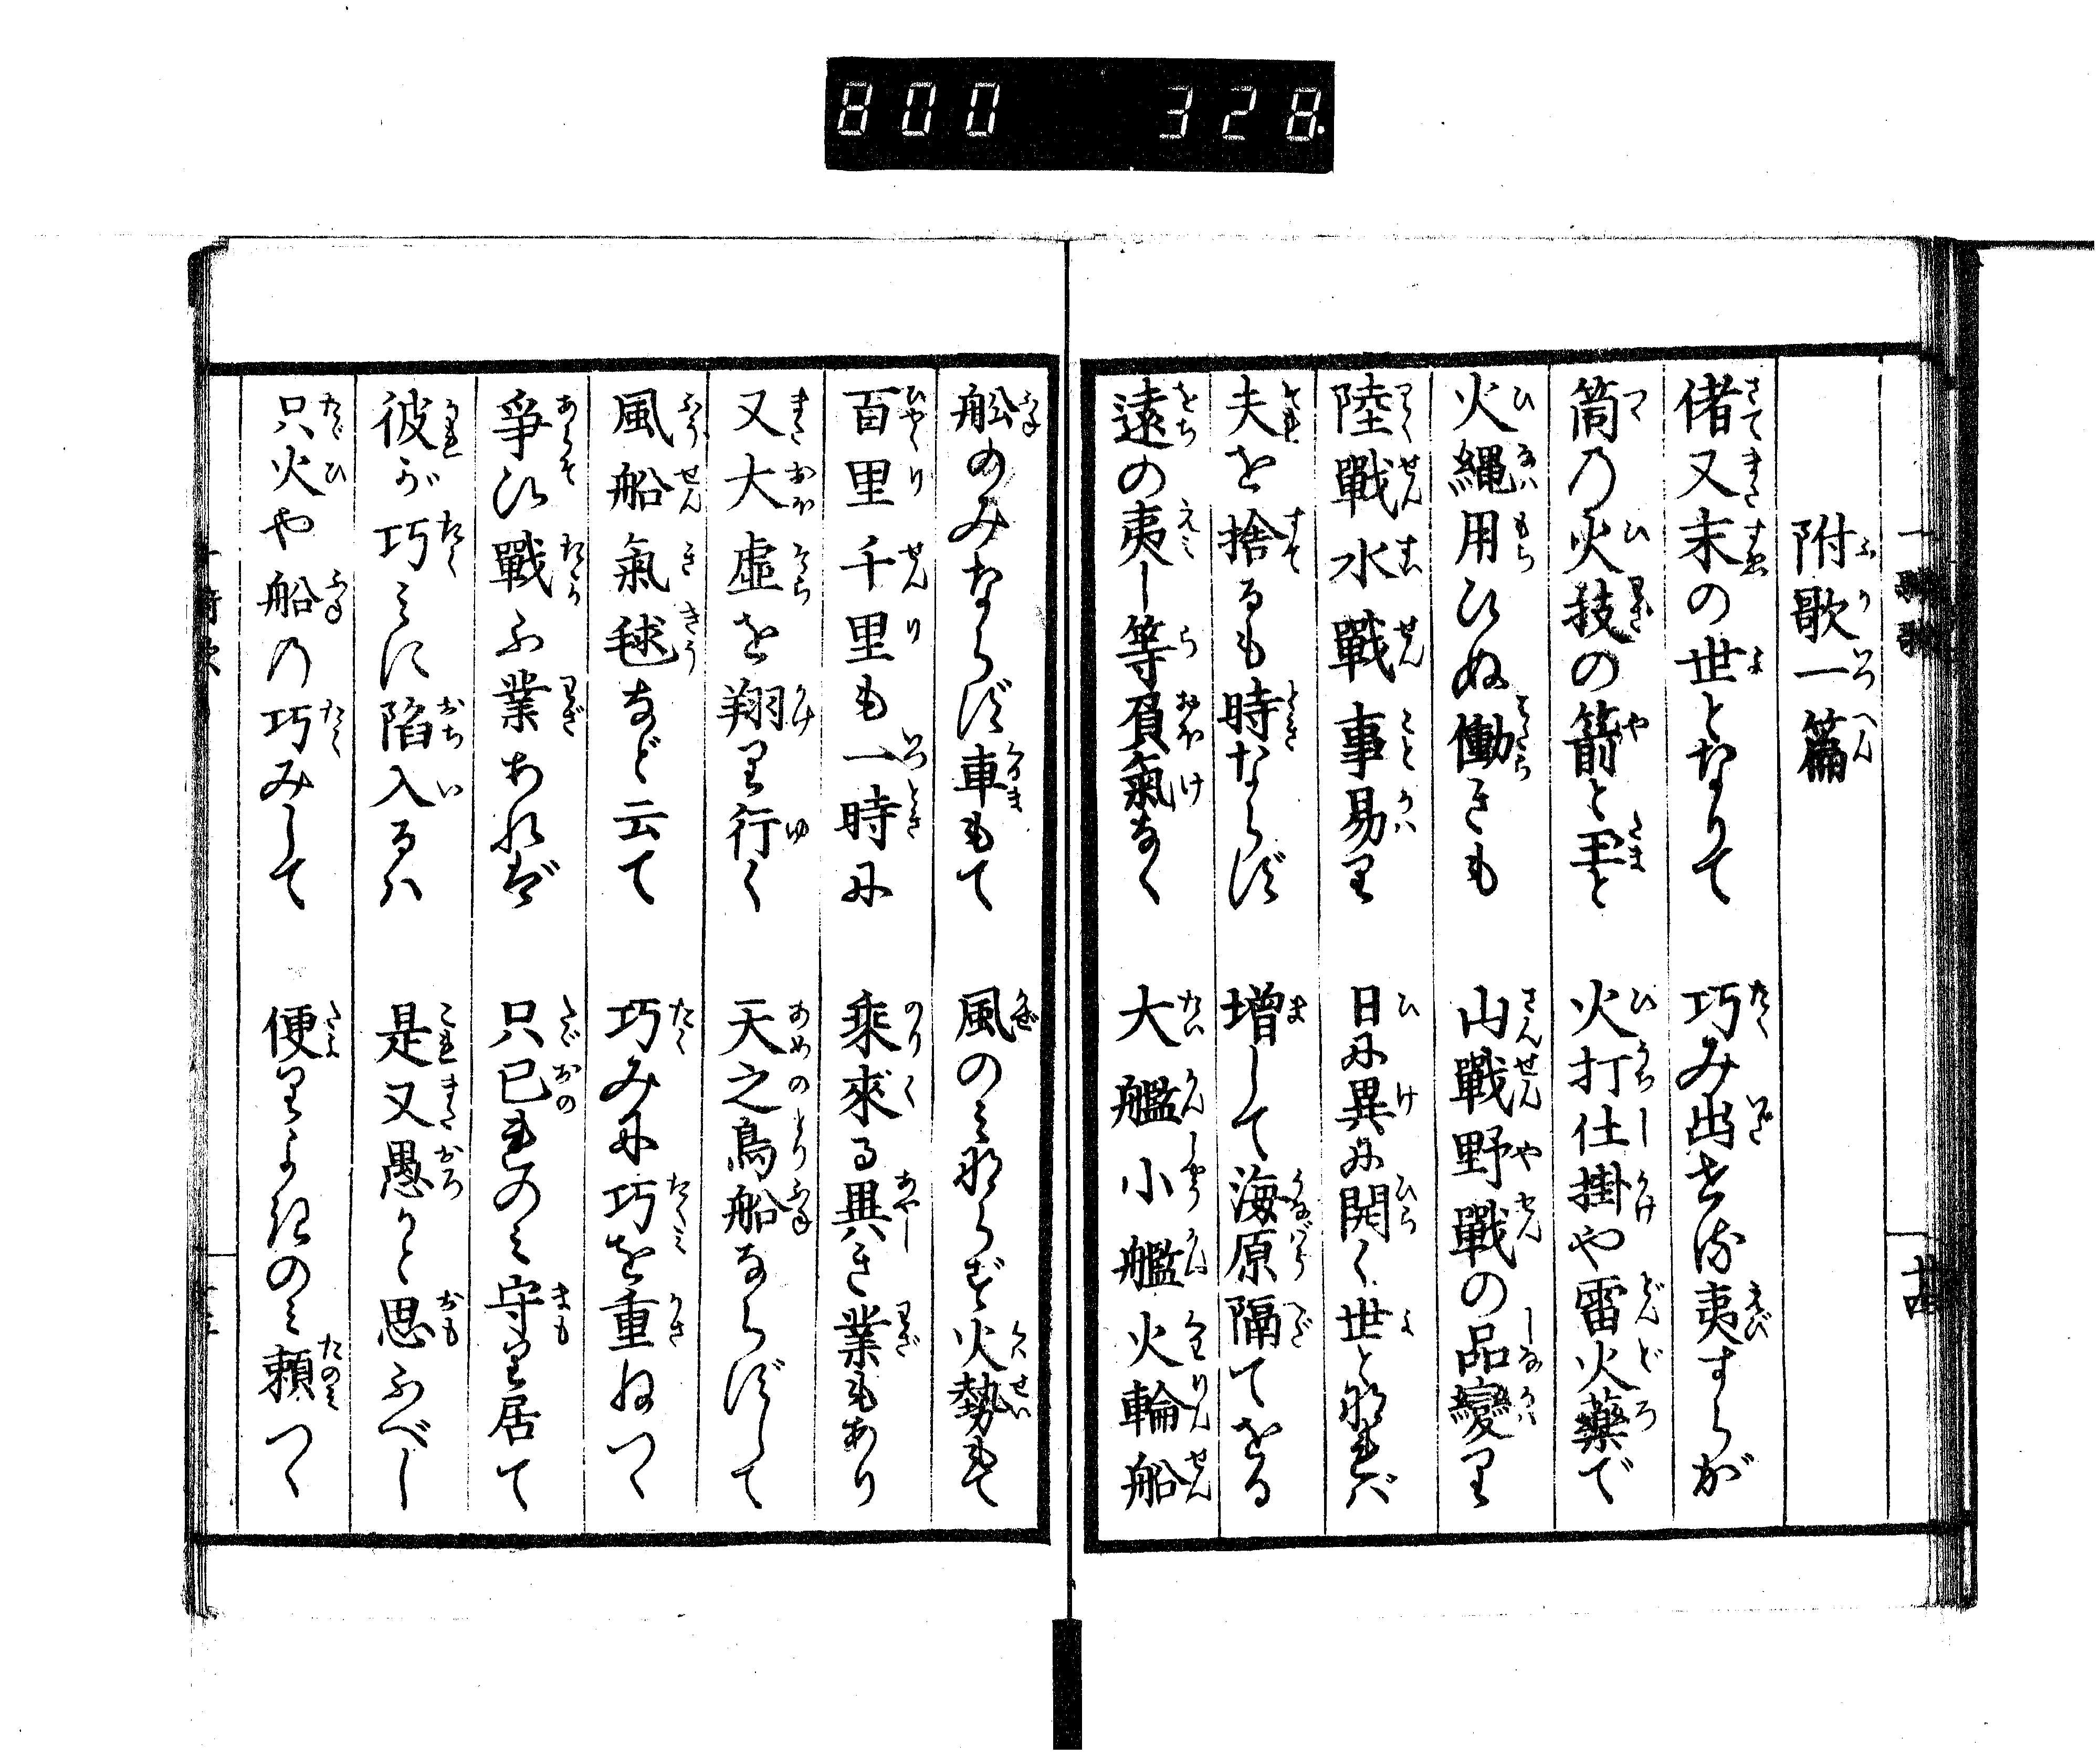 800 328
附歌一篇
偖又末の世となりて 巧み出せる夷すらが
筒乃火技の箭と玉と 火打仕掛や雷火藥で
火縄用ひぬ働きも 山戰野戰の品變り
陸戰水戰事易り 日に異に開く世となれバ
夫を捨るも時ならず 増して海原隔てをる
遠の夷し等負氣なく 大艦小艦火輪船
舩のみならず車もて 風のミならず火勢もて
百里千里も一時に 乘來る異き業もあり
又大虚を翔り行く 天之鳥船ならずして
風船氣毬など云て 巧みに巧を重ねつゝ
爭ひ戰ふ業あれど 只已れのミ守り居て
彼が巧ミに陷入るハ 是又愚かと思ふべし
只火や船乃巧みして 便りよきのミ頼つゝ